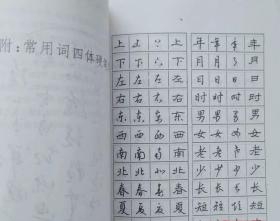 附：常用词四体硬
上 上 上 上 年 年 年 年
下 下 下 下 月 月 月 月
左 左 左 左 日 日 日 日
右 右 右 右 时 时 时 时
东 东 东 东 男 男 男 男
西 西 西 西 女 女 女 女
南 南 南 南 老 老 老 老
北 北 北 北 少 少 少 少
春 春 春 春 长 长 长 长
夏 夏 夏 夏 短 短 短 短